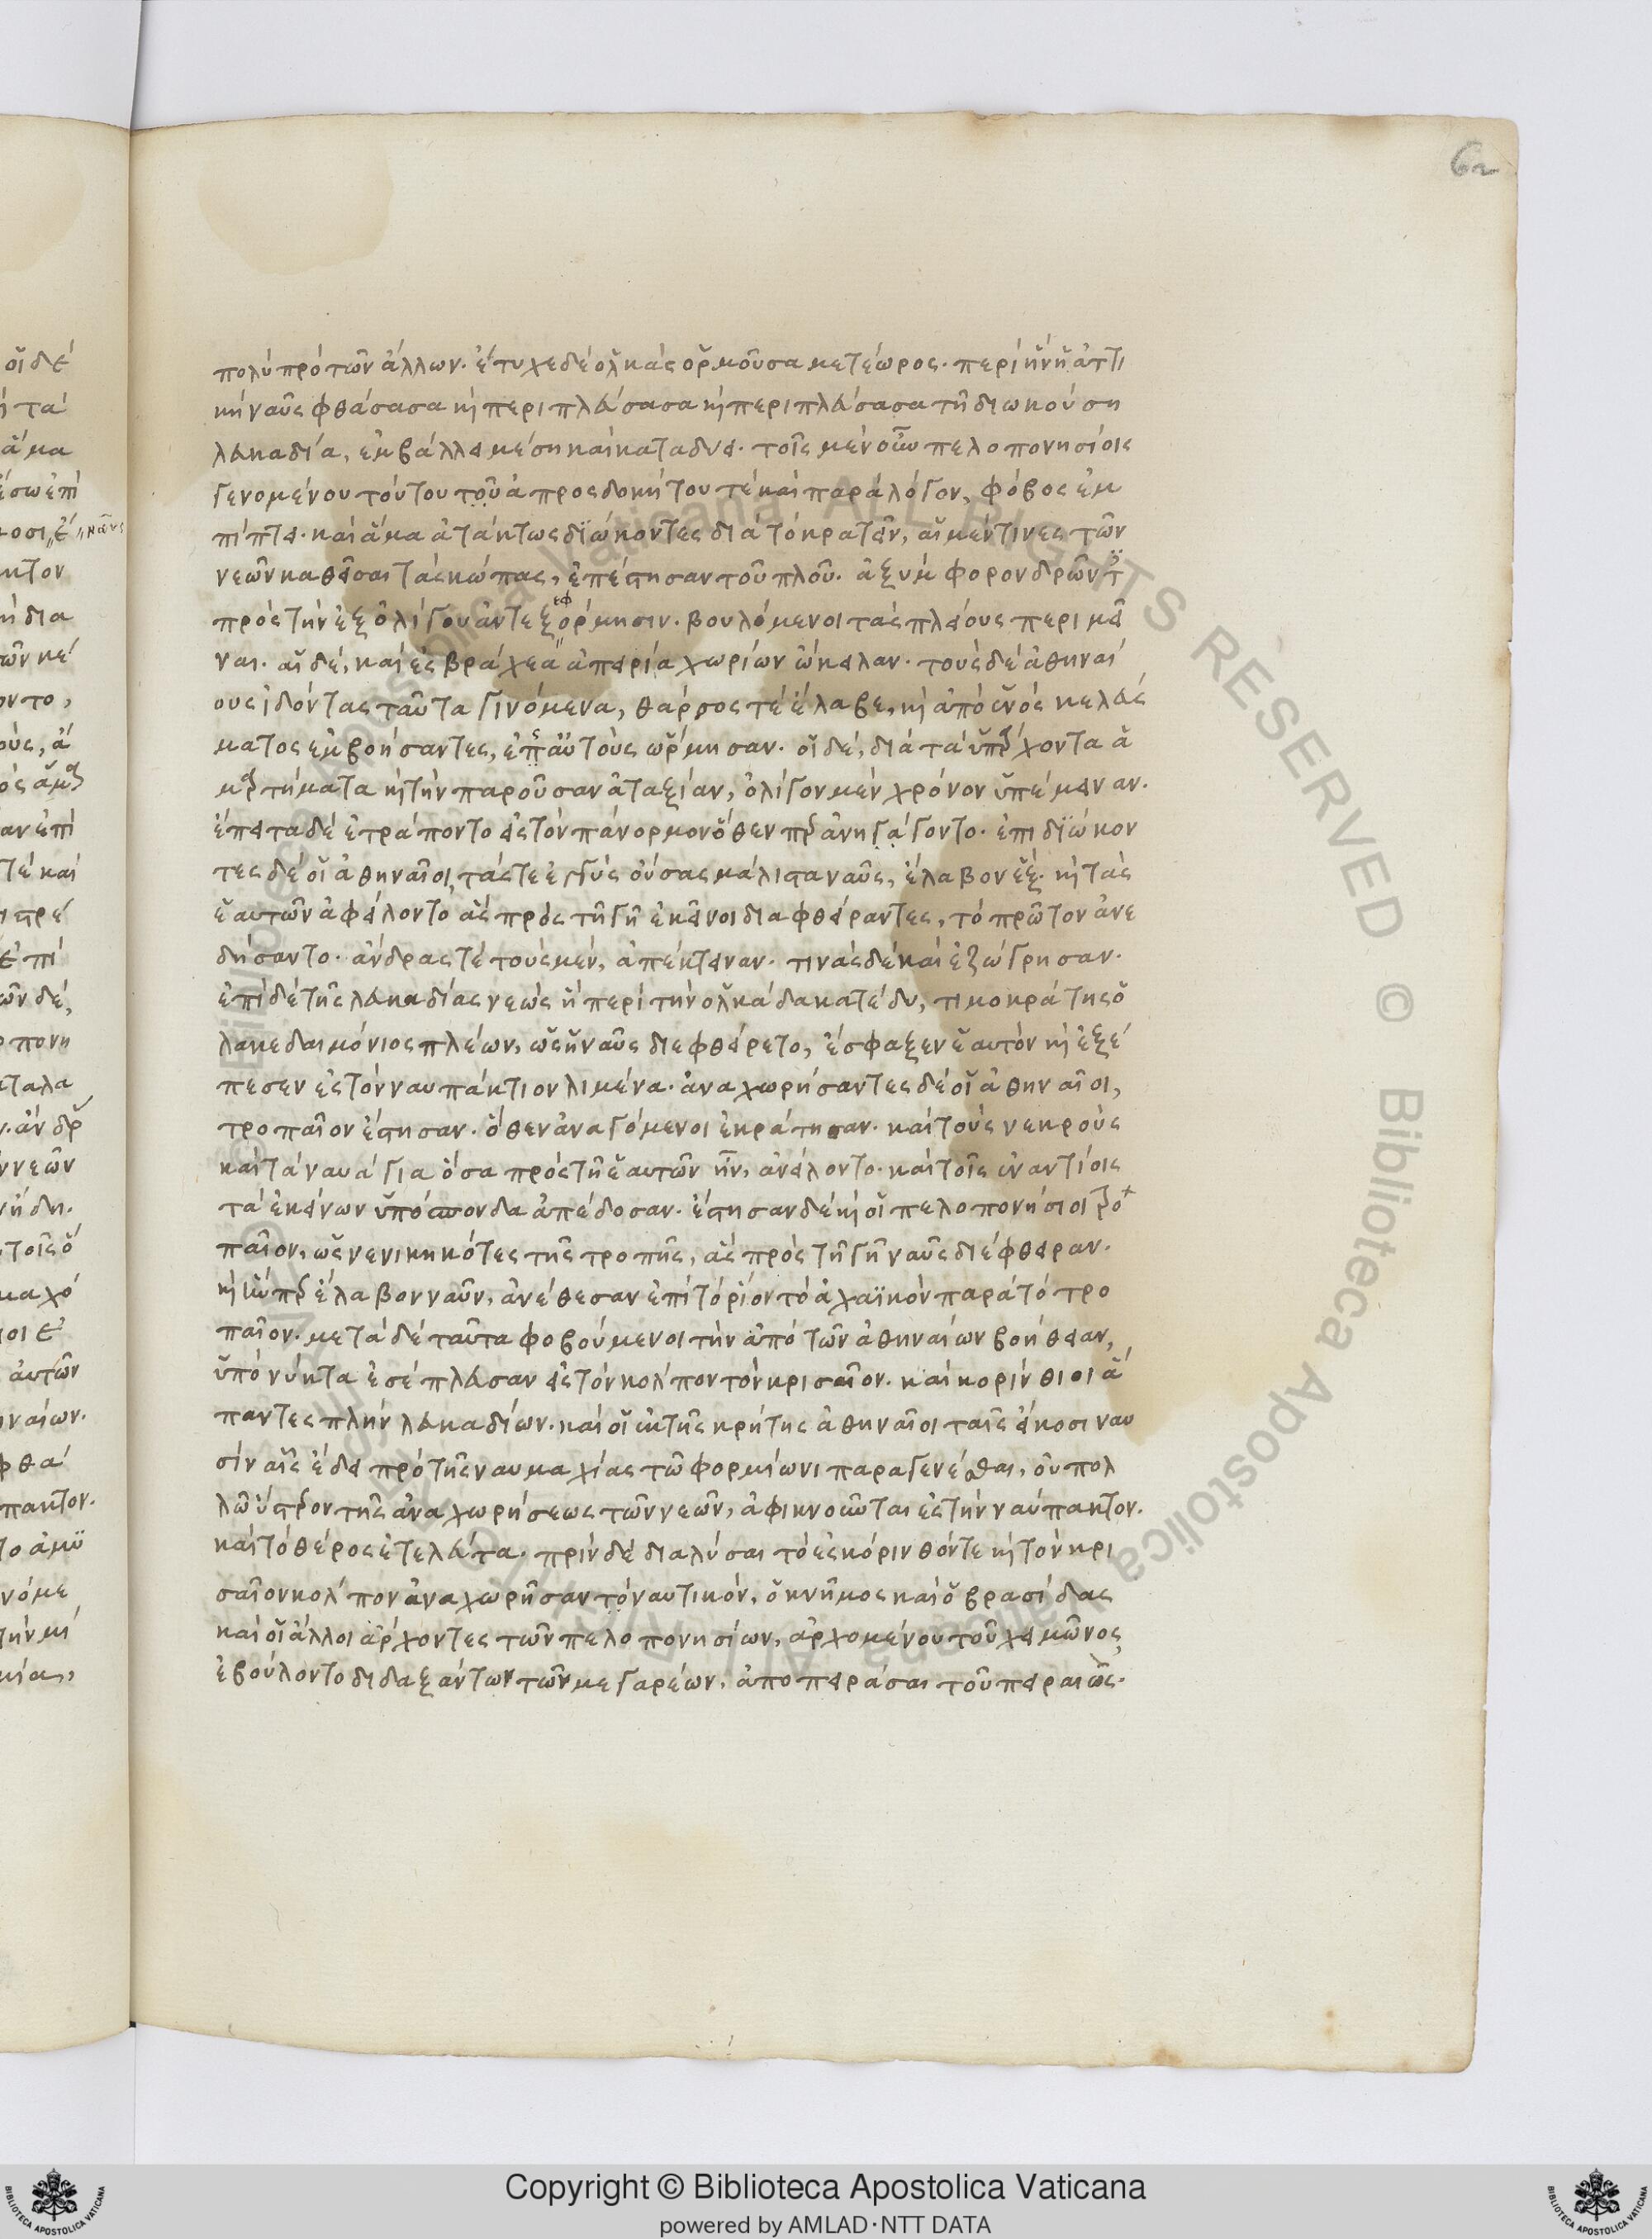 62
πολὺ πρὸ τῶν ἄλλων. ἔτυχε δὲ ὁλκὰς ὁρμοῦσα μετέωρος. περὶ ἣν ἡ ἀττι
κὴ ναῦς φθάσασα κὶ περιπλεύσασα κὶ περιπλεύσασα τῆ διωκούση
λευκαδία, ἐμβάλλει μέση καὶ καταδύει. τοῖς μὲν οὖν πελοπονησίοις
γενομένου τούτου τοῦ ἀπροσδοκήτου τὲ καὶ παράλόγον, φόβος ἐμ
πίπτει. καὶ ἅμα ἀτάκτως διώκοντες διὰ τὸ κρατεῖν, αἱ μέν τινες τῶν
νεῶν καθεῖσαι τὰς κώπας, ἐπέστησαν τοῦ πλοῦ. ἀξυμφορον δρῶντ
πρὸς τὴν ἐξ ὀλίγου ἀντεξόρμησιν. βουλόμενοι τὰς πλείους περιμεῖ
ναι. αἱ δὲ, καὶ ἐς βράχεα ἀπειρία χωρίων ὤκειλαν. τοὺς δὲ ἀθηναί
ους ἰδόντας ταῦτα γινόμενα, θάρσος τὲ ἔλαβε, κὶ ἀπὸ ἑνὸς κελεύς
ματος ἐμβοήσαντες, ἐπ αὐτοὺς ὥρμησαν. οἱ δὲ, διὰ τὰ ὑπάρχοντα ἁ
μαρτήματα κὶ τὴν παροῦσαν ἀταξίαν, ὀλίγον μὲν χρόνον ὑπέμειναν.
ἔπειτα δὲ ἐτράποντο εἰς τὸν πάνορμον ὅθεν περ ἀνηγάγοντο. ἐπιδιώκον
τες δὲ οἱ ἀθηναῖοι, τάς τε ἐγγὺς οὔσας μάλιστα ναῦς, ἔλαβον ἕξ. κὶ τὰς
ἑαυτῶν ἀφείλοντο ἃς πρὸς τῆ γῆ ἐκεῖνοι διαφθείραντες, τὸ πρῶτον ἀνε
δήσαντο. ἄνδρας τὲ τοὺς μὲν, ἀπέκτειναν. τινὰς δὲ καὶ ἐζώγρησαν.
ἐπὶ δὲ τῆς λευκαδίας νεὼς ἣ περὶ τὴν ὁλκάδα κατέδυ, τιμοκράτης ὁ
λακεδαιμόνιος πλέων, ὡς ἡ ναῦς διεφθείρετο, ἔσφαξεν ἑαυτὸν κὶ ἐξέ
πεσεν ἐς τὸν ναυπάκτιον λιμένα. ἀναχωρήσαντες δὲ οἱ ἀθηναῖοι,
τροπαῖον ἔστησαν. ὅθεν ἀναγόμενοι ἐκράτησαν. καὶ τοὺς νεκροὺς
καὶ τὰ ναυάγια ὅσα πρὸς τῆ ἑαυτῶν ἦν, ἀνείλοντο. καὶ τοῖς ἐναντίοις
τὰ ἐκείνων ὑπόσπονδα ἀπέδοσαν. ἔστησαν δὲ κὶ οἱ πελοπονήσιοι τρο
παῖον, ὡς νενικηκότες τῆς τροπῆς, ἃς πρὸς τῆ γῆ ναῦς διέφθειραν.
κὶ ἥνπερ ἔλαβον ναῦν, ἀνέθεσαν ἐπὶ τὸ ῥίον τὸ ἀχαϊκὸν παρὰ τὸ τρο
παῖον. μετὰ δὲ ταῦτα φοβούμενοι τὴν ἀπὸ τῶν ἀθηναίων βοήθειαν,
ὑπὸ νύκτα ἐσέπλευσαν εἰς τὸν κολπον τὸν κρισαῖον. καὶ κορίνθιοι ἅ
παντες πλὴν λευκαδίων. καὶ οἱ ἐκ τῆς κρήτης ἀθηναῖοι ταῖς εἴκοσι ναυ
σὶν αἷς ἔδει πρὸ τῆς ναυμαχίας τῶ φορμίωνι παραγενέσθαι, οὐ πολ
λῶ ὕστερον τῆς ἀναχωρήσεως τῶν νεῶν, ἀφικνοῦνται ἐς τὴν ναύπακτον.
καὶ τὸ θέρος ἐτελεύτα. πρὶν δὲ διαλύσαι τὸ ἐς κόρινθόν τε κὶ τὸν κρι
σαῖον κολπον ἀναχωρῆσαν τὸ ναυτικόν, ὁ κνῆμος καὶ ὁ βρασίδας
καὶ οἱ ἄλλοι ἄρχοντες τῶν πελοπονησίων, ἀρχομένου τοῦ χειμῶνος
ἐβούλοντο διδαξάντων τῶν μεγαρέων, ἀποπειράσαι τοῦ πειραιῶς.
Copyright © Biblioteca Apostolica Vaticana
powered by AMLAD·NTT DATA